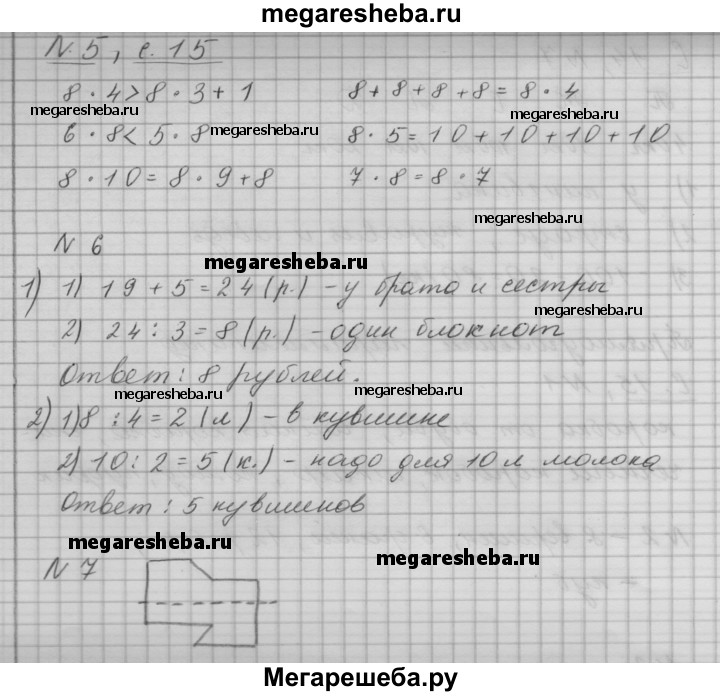 megaresheba.ru
N 5, с. 15
8 · 4 > 8 · 3 + 1 8 + 8 + 8 + 8 = 8 · 4
megaresheba.ru megaresheba.ru
6 · 8 < 5 · 8 megaresheba.ru 8 · 5 = 10 + 10 + 10 + 10
8 · 10 = 8 · 9 + 8 7 · 8 = 8 · 7
megaresheba.ru
N 6
megaresheba.ru
1) 1) 19 + 5 = 24 (р.) - у брата и сестры
megaresheba.ru
2) 24 : 3 = 8 (р.) - один блокнот
Ответ: 8 рублей.
megaresheba.ru megaresheba.ru
2) 1) 8 : 4 = 2 (л) - в кувшине
2) 10 : 2 = 5 (к.) - надо для 10 л молока
Ответ: 5 кувшинов
megaresheba.ru
megaresheba.ru
N 7
Мегарешеба.ру